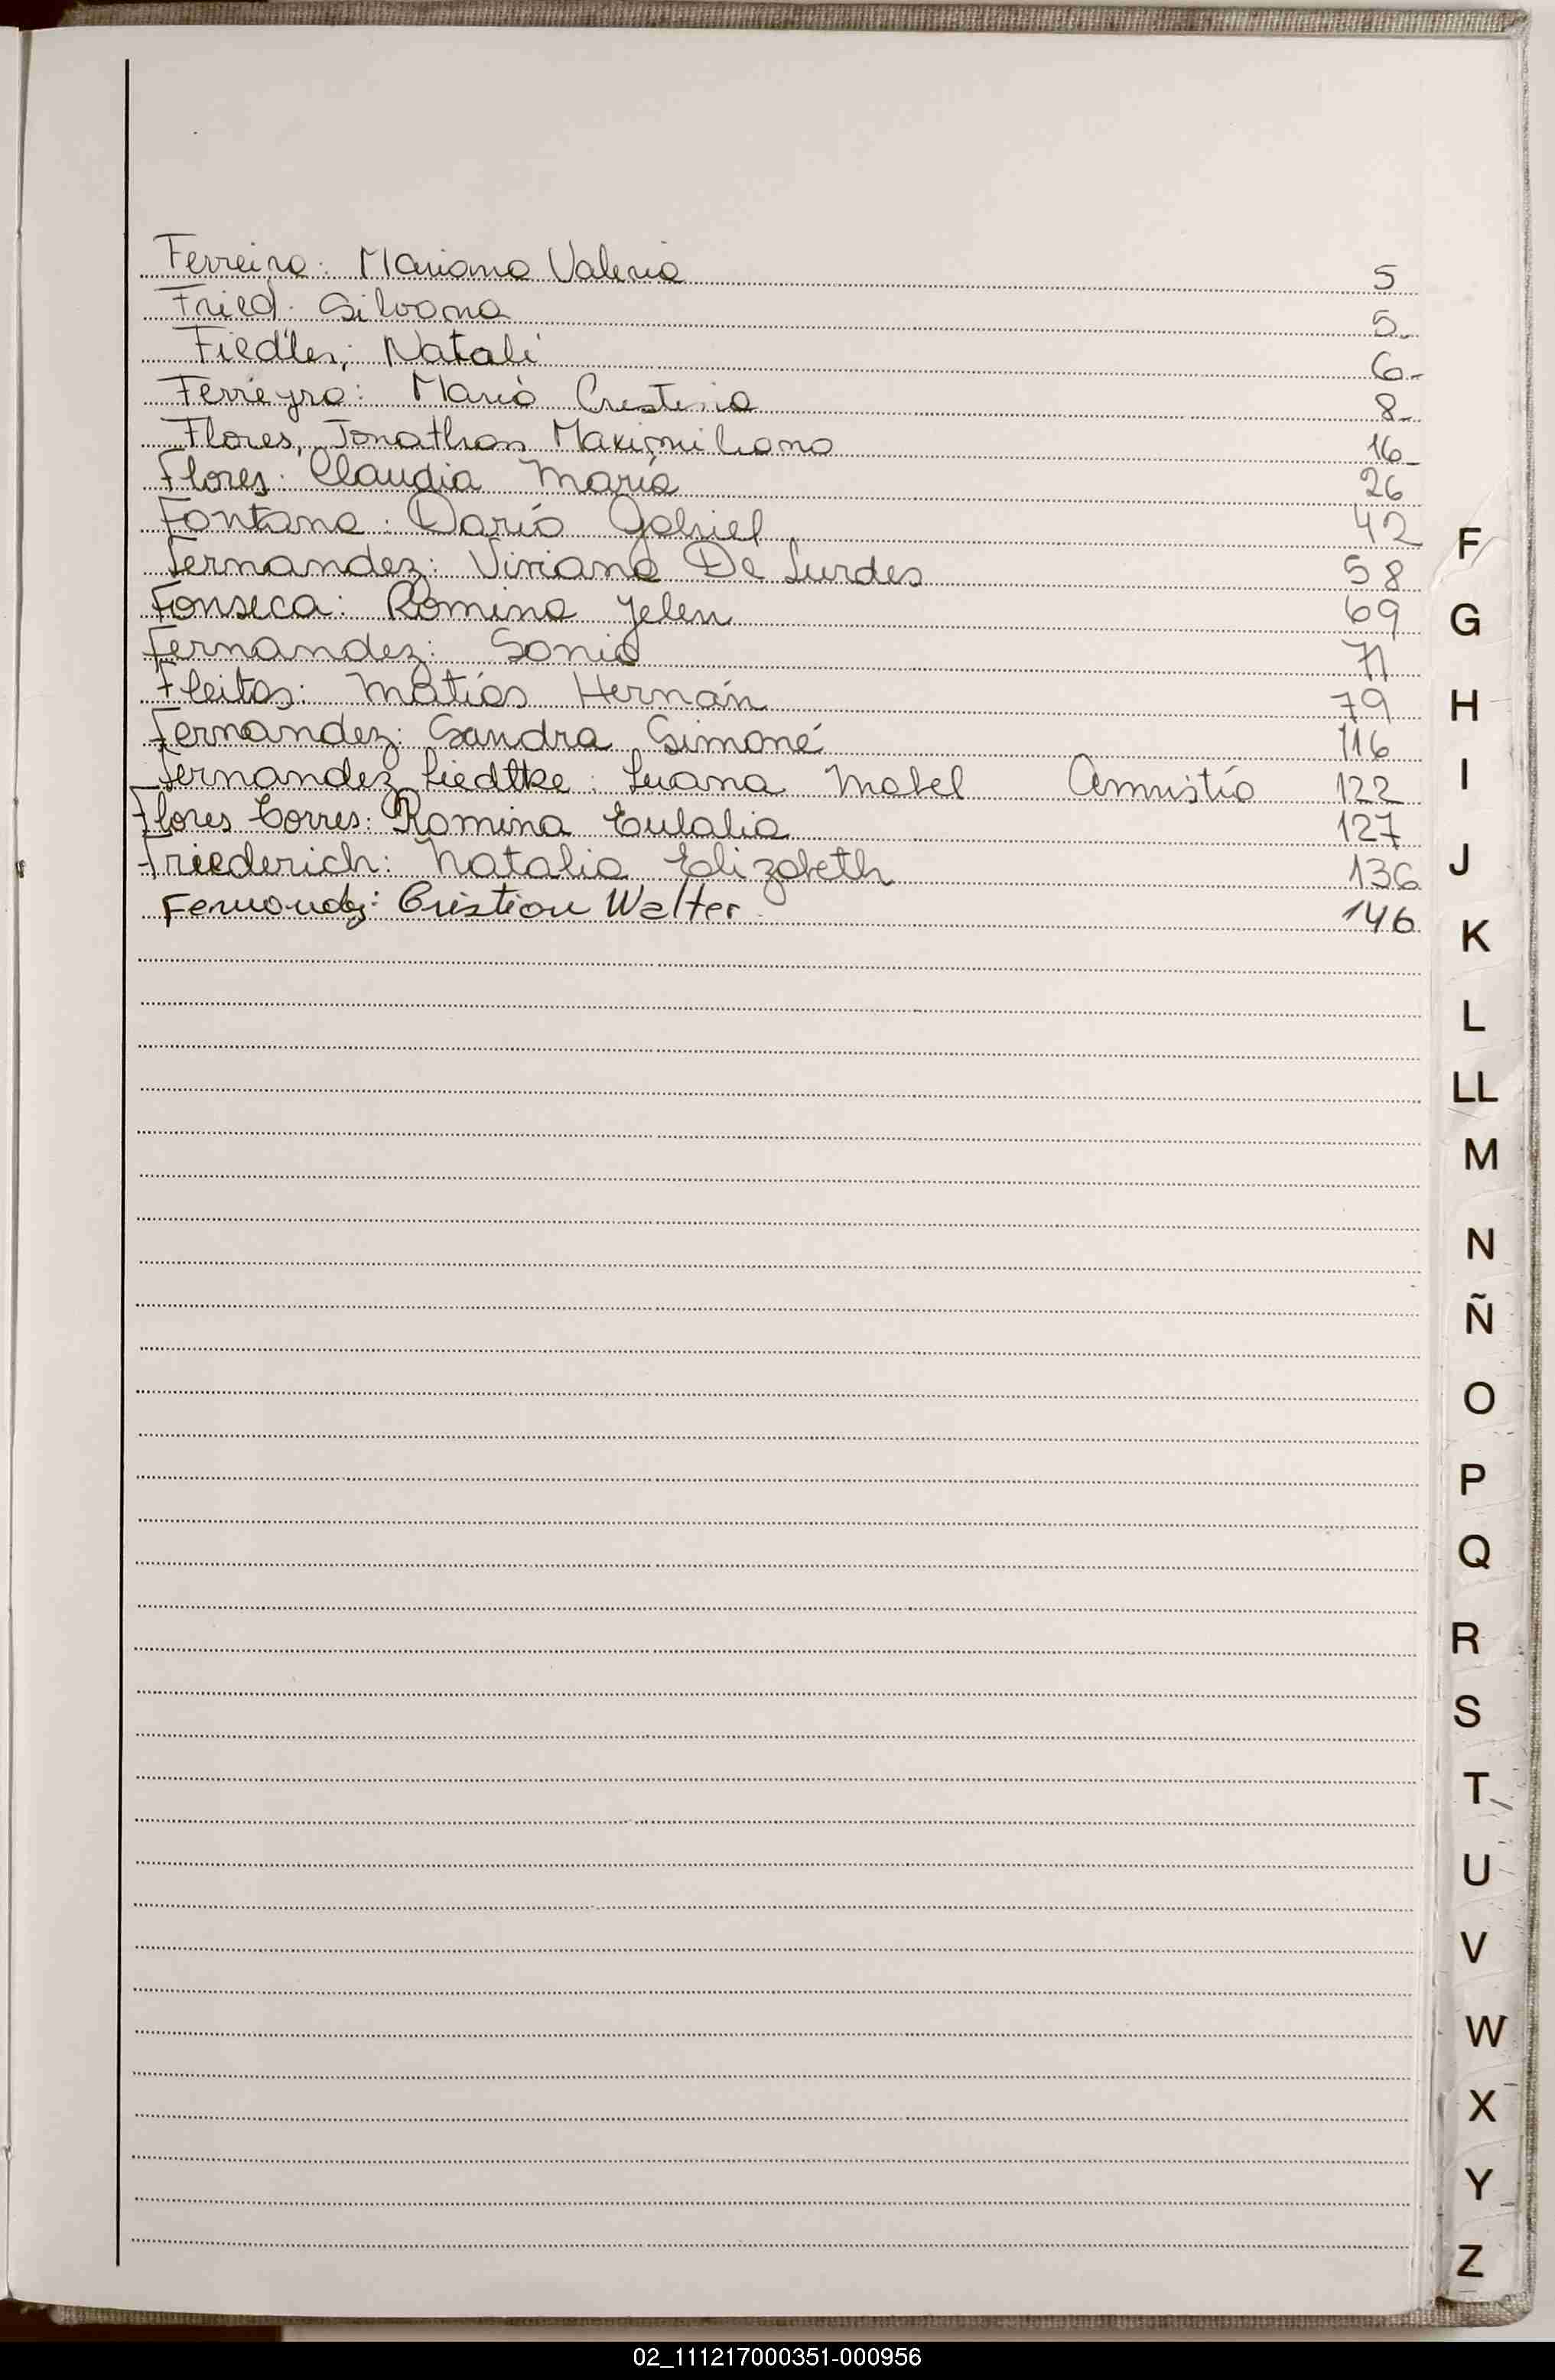 Ferreira: Mariana Valeria 5
Fried: Silvana 5-
Fiedler: Natali 6-
Ferreyra: María Cristina 8-
Flores, Jonathan Maximiliano 16-
Flores: Claudia María 26
Fontana: Darío Gabriel 42
Fernandez: Viviana De Lurdes 58
Fonseca: Romina Yelen 69
Fernandez: Sonia 71
Fleitas: Matías Hernán 79
Fernandez: Sandra Simoné 116
Fernandez Liedtke: Luana Mabel Amnistía 122
Flores Torres: Romina Eulalia 127
Friederich: Natalia Elizabeth 136
Fernandez: Cristian Walter 146
F
G
H
I
J
K
L
LL
M
N
Ñ
O
P
Q
R
S
T
U
V
W
X
Y
Z
02_111217000351-000956